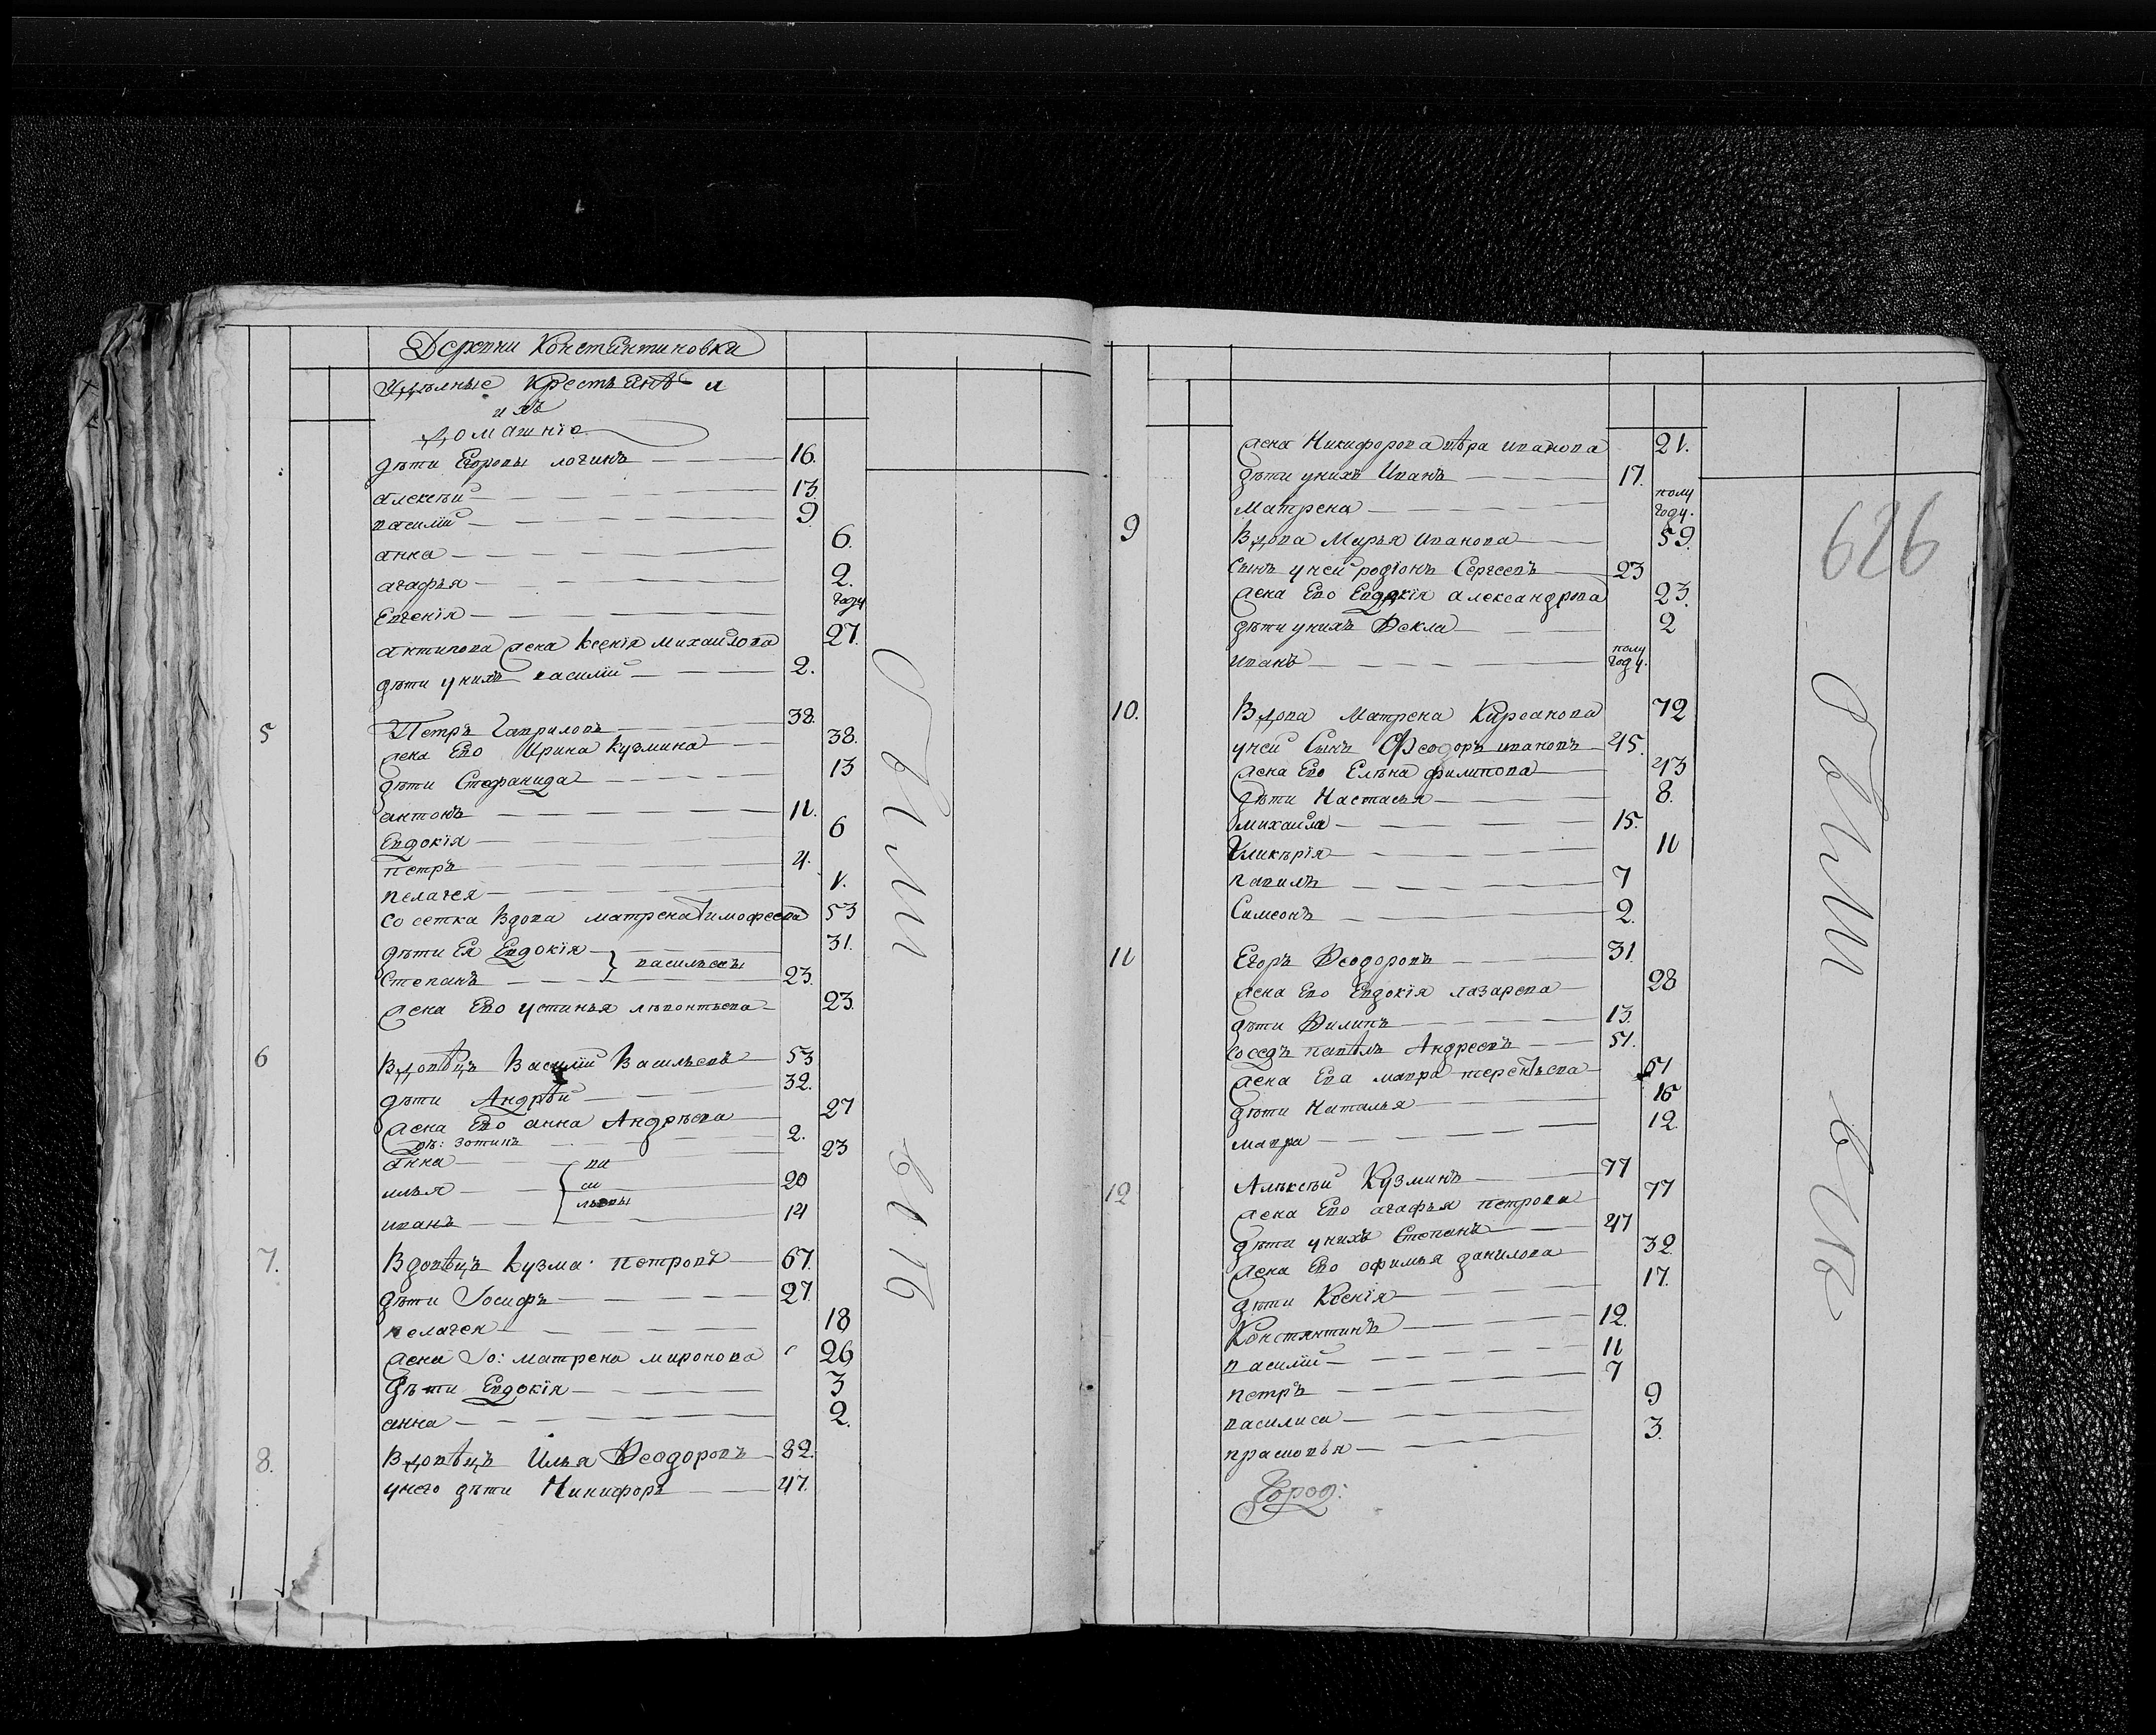 Деревни Константиновки
Удѣлные крестьянѣ и
ихъ
домашнiе
дѣти Егоровы логинъ 16.
алексѣй 13
василiй 9
анна 6.
агафья 2.
Евгенiя году
антипова жена Ксенiя михайлова 27.
дѣти унихъ василiй 2.
5 Петръ Гавриловъ 38.
жена Ево Ирина Кузмина 38.
дѣти Стефанида 13
антонъ 11.
Евдокiя 6
петръ 4.
пелагея 1.
сосетка вдова матрена тимофеева 53
дѣти Ея Евдокiя 31.
васильевы
Степанъ 23.
жена Ево устинья лѣвонтьева 23.
6 Вдовѣцъ Василiй Васильевъ 53
дѣти Андрѣй 32.
жена Ево анна Андрѣева 27
дѣ: зотинъ 2.
анна ва 23
илья си 20
льевы
иванъ 14
7. Вдовѣцъ Кузма петровъ 67.
дѣти Iосифъ 27.
пелагея 18
жена Iо: матрена миронова 26
дѣти Евдокiя 3
анна 2.
8. Вдовѣцъ Илья Ѳеодоровъ 82.
унего дѣти Никифоръ 47.
были
вмѣ
жена Никифорова вѣра иванова 21.
дѣти унихъ Иванъ 17.
Матрена полу
году.
9 Вдова Марья Иванова 59.
сынъ уней родiонъ Сергеевъ 23
жена Ево Евдокiя александрова 23.
дѣти унихъ Фекла 2
иванъ полу
году.
10. Вдова Матрена Кирсанова 72
уней Сынъ Феодоръ ивановъ 45.
жена Ево Елѣна филипова 43
дѣти Настасья 8.
михаила 15.
Гликѣрiя 11
павилъ 7
Симеонъ 2.
11 Егоръ Ѳеодоровъ 31
жена Ево Евдокiя лазарева 28
дѣти Филипъ 13.
соседъ павѣлъ Андреевъ 51.
жена Ева мавра терентьева 51
дѣти Наталья 15
мавра 12
12 Алѣксѣй Кузминъ 77
жена Ево агафья петрова 77
дѣти унихъ Степанъ 47
жена Ево офимья данилова 32
дѣти Ксенiя 17.
Константинъ 12.
василiй 11
петръ 7
василиса 9
прасковья 3.
Город:
626
были